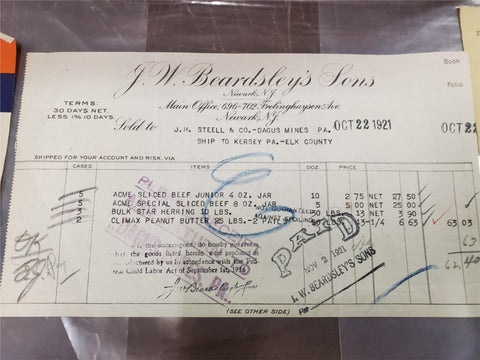 J. W. Beardsley's Sons
Newark, N.J.
Main Office, 696-702 Frelinghuysen Ave.
Newark, N.J.
Book
folio
TERMS:
30 DAYS NET.
LESS 1% 10 DAYS.
Sold to
OCT 22 1921
OCT 22 1921
J. H. STEELL & CO.-DAGUS MINES PA.
SHIP TO KERSEY PA.-ELK COUNTY
SHIPPED FOR YOUR ACCOUNT AND RISK, VIA
CASES DOZ. PRICE
5 ACME SLICED BEEF JUNIOR 4 OZ. JAR 10 2 75 NET 27 50
5 ACME SPECIAL SLICED BEEF 8 OZ. JAR 5 5 00 NET 25 00
3 BULK STAR HERRING 10 LBS. 30 LBS 13 NET 3 90
2 CLIMAX PEANUT BUTTER 25 LBS. 13-1/4 6 63 63 03
NOT GUARANTEED
AGAINST SPOILING
63
62 40
We, the undersigned, do hereby guarantee
that the goods listed herein were produced
in accordance with the
Child Labor Act of September 1st, 1916
PAID
NOV 2 1921
J. W. BEARDSLEY'S SONS
Per
(SEE OTHER SIDE)